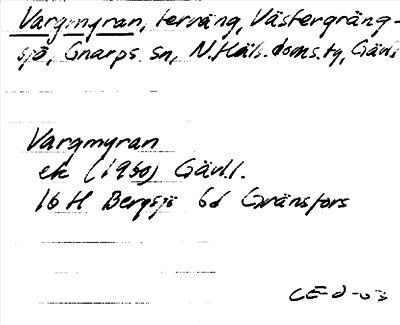 Vargmyran, terräng, Västergräng-
sjö, Gnarps sn, N.Häls.doms.tg, Gävl.
Vargmyran
ek (1960) Gävl.l.
16 H Bergsjö 6d Gränsfors